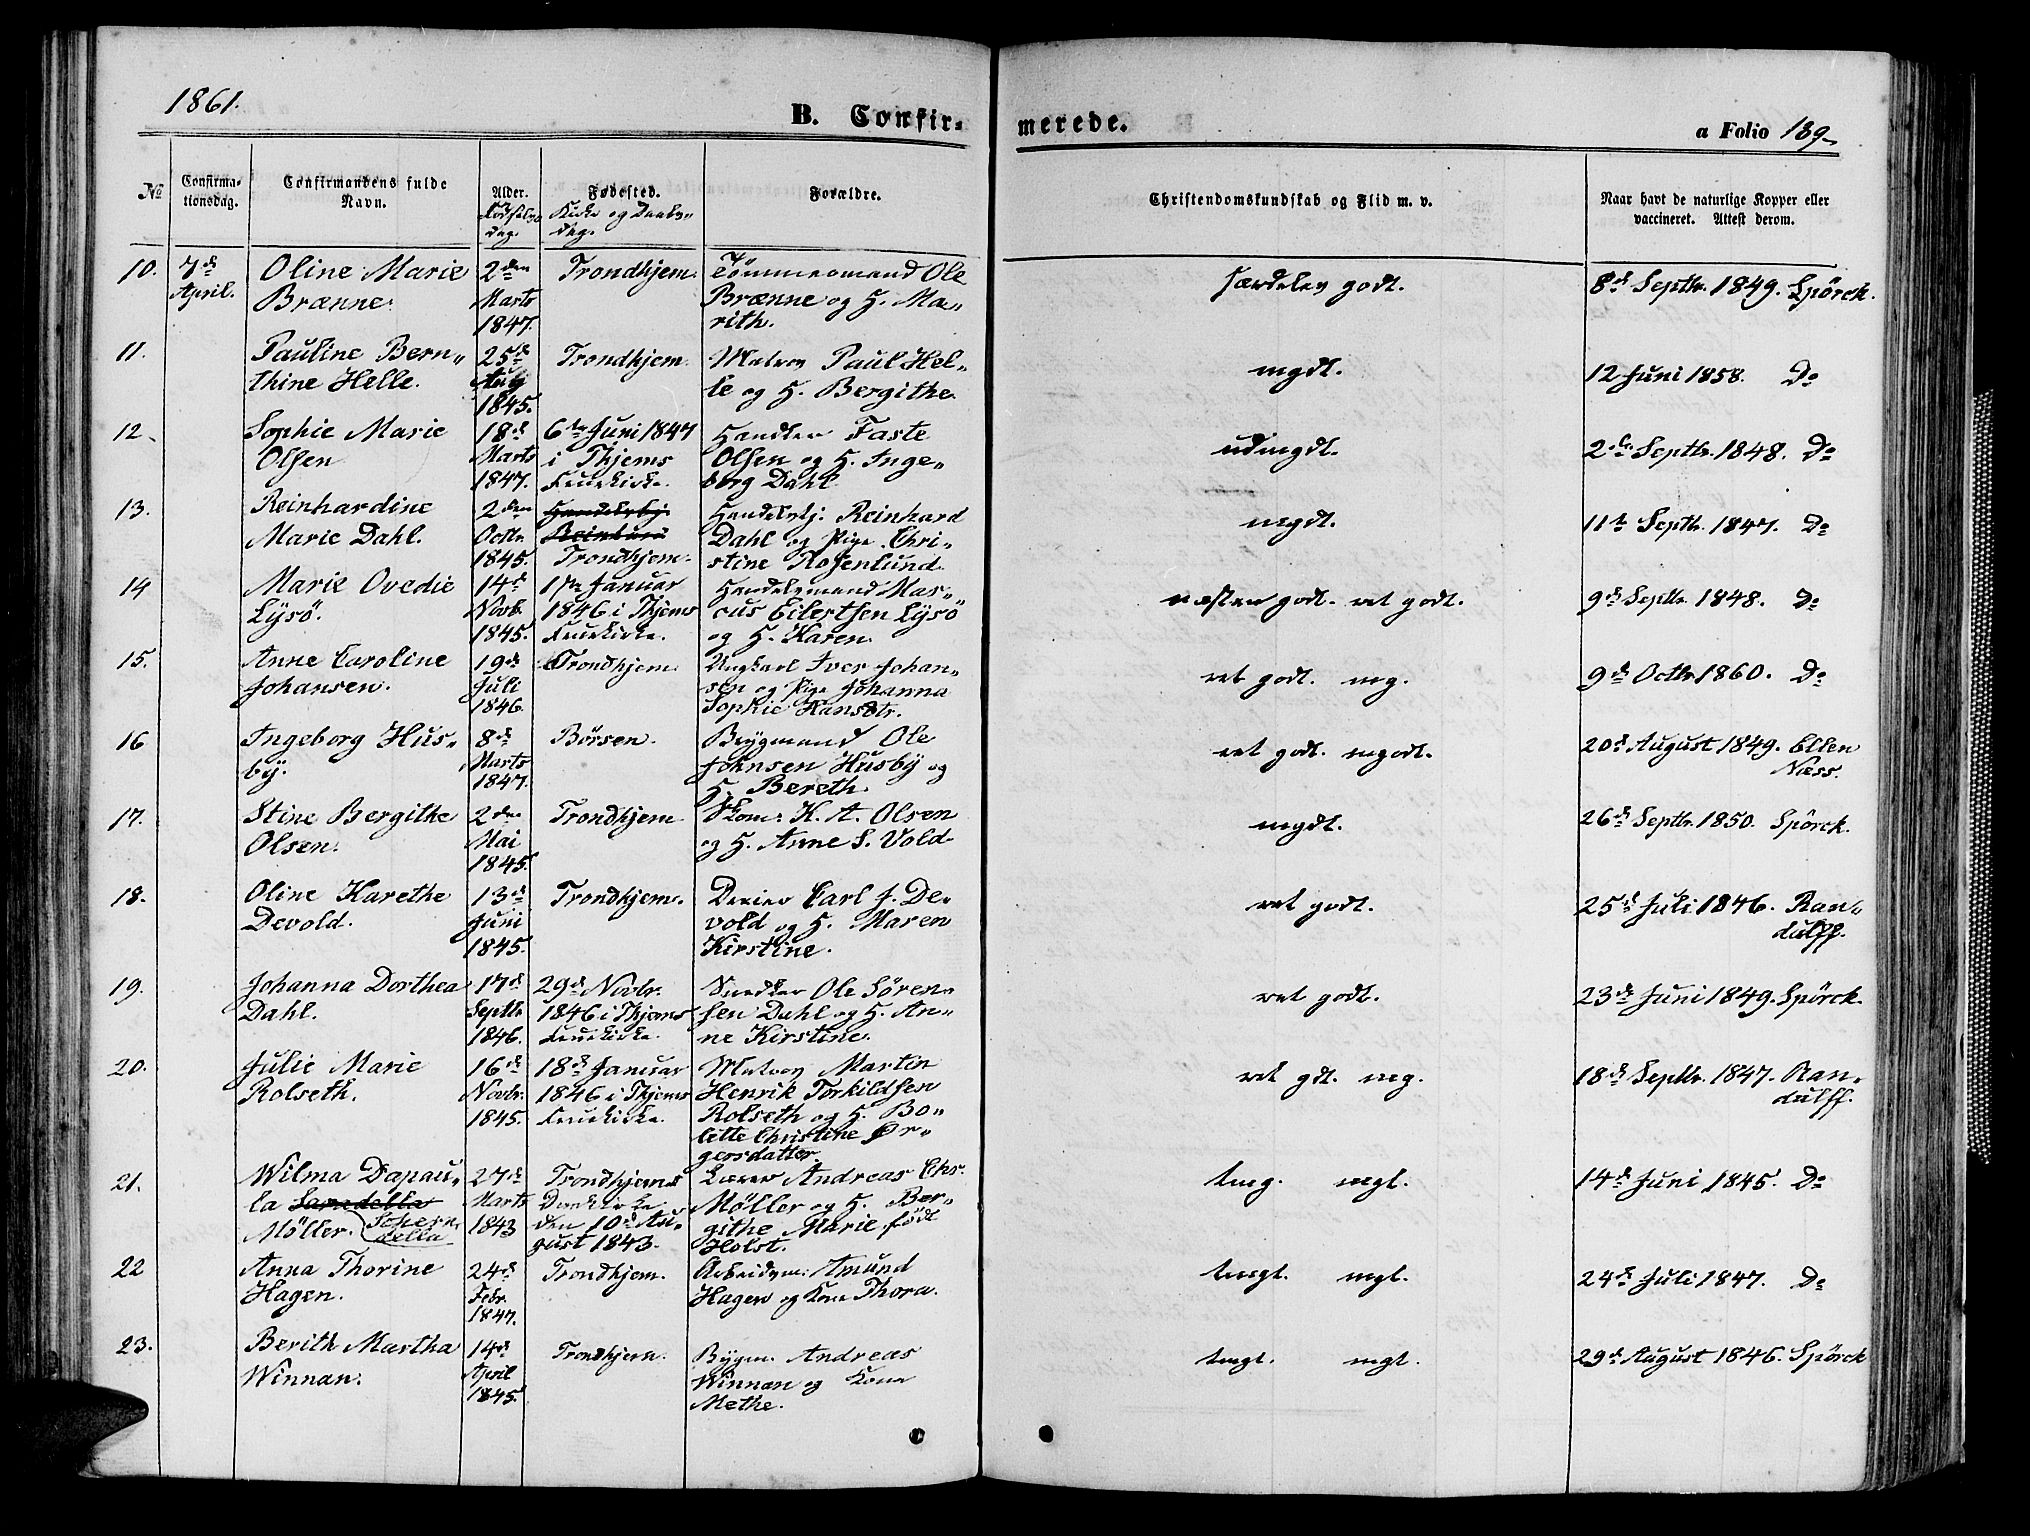 1861.
B. Confir-
merede.
a Folio 139
No
Confirma-
tionsdag.
Confirmandens fulde
Navn.
Alder.
Fødselsdag.
Fødested.
Kirke og Daabs-
dag.
Forældre.
Christendomskundskab og Flid m. v.
Naar havt de naturlige Kopper eller
vaccineret. Attest derom.
10. 7d April. Oline Marie
Brænne.
2den Marts 1847.
Trondhjem.
Tømmermand Ole
Brænne og H. Ma-
rith.
særdeles godt.
8d Septbr. 1849. Spörck.
11. Pauline Bern-
thine Helle.
25d Aug 1845.
Trondhjem.
Matros Paul Hel-
le og H. Bergithe.
mgdt.
12 Juni 1858. Do
12. Sophie Marie
Olsen
18d Marts 1847.
6te Juni 1847
i Thjems
Fruekirke.
Handler Faste
Olsen og H. Inge-
borg Dahl
udmgdt.
2den Septbr. 1848. Do
13. Reinhardine
Marie Dahl.
2den Octr. 1845.
Trondhjem.
Handelsbj. Reinhard
Dahl og Pige Chri-
stine Rosenlund.
mgdt.
11te Septbr. 1847. Do
14 Marie Ovedie
Lysö.
14d Novb. 1845.
1ste Januar
1846 i Thjems
Fruekirke.
Handelsmand Mar-
cus Eilertsen Lysö
og H. Karen.
næsten godt. ret godt.
9d Septbr. 1848. Do
15. Anne Caroline
Johansen.
19d Juli 1846.
Trondhjem.
Ungkarl Iver Johan-
sen og Pige Johanna
Sophie Hansdtr.
ret godt. mg.
9d Octbr 1860. Do
16 Ingeborg Hus-
by.
8d Marts 1847.
Börsen.
Brygmand Ole
Johnsen Husby og
H. Bereth
ret godt. mgodt.
20d August 1849. Ellen
Næss.
17. Stine Bergithe
Olsen.
2den Mai 1845.
Trondhjem
Skom. H. A. Olsen
og H. Anne S. Vold.
mgdt.
26d Septbr. 1850. Spörck.
18. Oline Karethe
Devold.
13d Juni 1845.
Trondhjem.
Carl J. De-
vold og H. Maren
Kirstine.
ret godt.
25d Juli 1846. Ran-
dulff.
19. Johanna Dorthea
Dahl.
17d Septbr 1846.
29d Novbr.
1846 i Thjems
Fruekirke.
Snedker Ole Sören-
sen Dahl og H. An-
ne Kirstine.
ret godt.
23d Juni 1849. Spörck.
20. Julie Marie
Rolseth.
16d Novbr. 1845.
18d Januar
1846 i Thjems
Fruekirke.
Matros Martin
Henrik Torkildsen
Rolseth og H. Bo-
lette Christine Ør-
gersdatter.
ret gdt. mg.
18d Septbr. 1847. Ran-
dulff.
21. Wilma Dapau-
la
Möller. Schern
della
27d Marts 1843
Trondhjems
Domkirke
den 10d Au-
gust 1843.
Lærer Andreas Chr.
Møller og H. Ber-
githe Marie født
Holst.
tmg. mgt.
14d Juni 1845. Do
22 Anna Thorine
Hagen.
24d Febr. 1847.
Trondhjem.
Arbeidsm. Amund
Hagen og Kone Thora.
tmgt. mgt.
24d Juli 1847. Do
23. Berith Martha
Winnan.
14d April 1845.
Trondhjem.
Bygm. Andreas
Winnan og Kone
Methe.
tmgt. mgt.
29d August 1846. Spörck